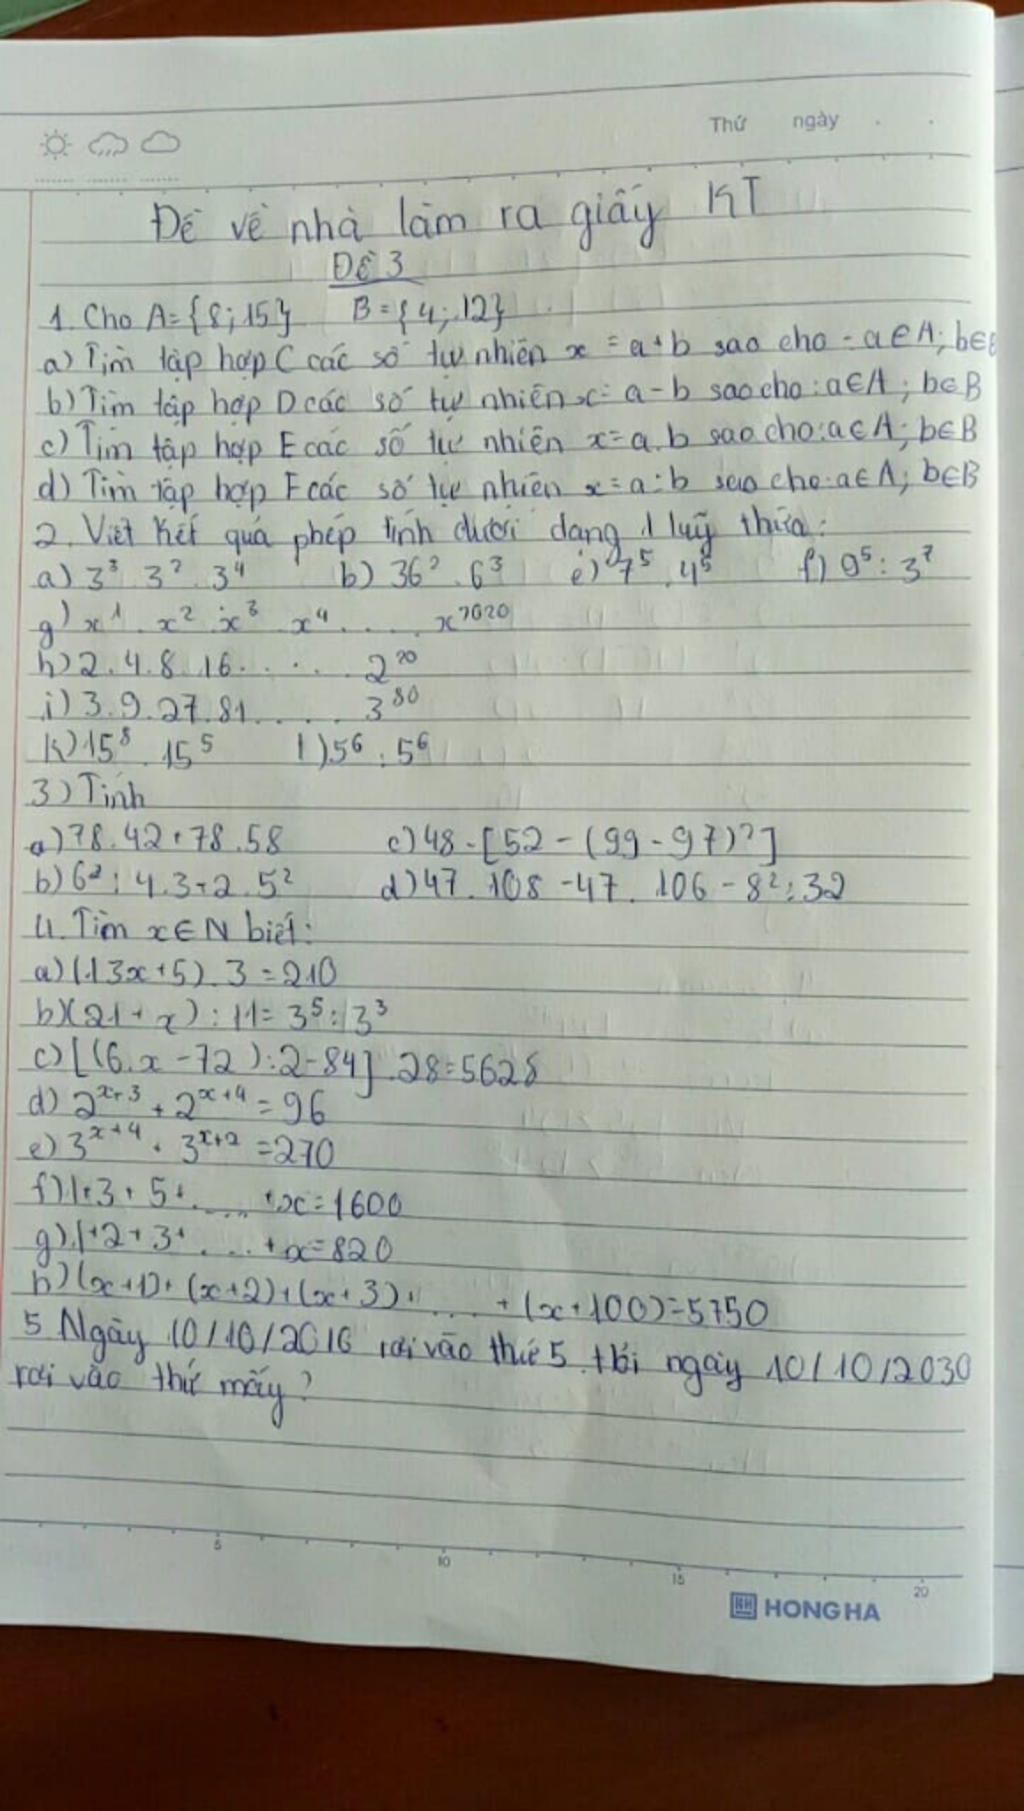 Thứ ngày
Đề về nhà làm ra giấy KT
Đề 3
1. Cho A={8;15} B={4;12}
a) Tìm tập hợp C các số tự nhiên x = a+b sao cho: a∈A; b∈B
b) Tìm tập hợp D các số tự nhiên x = a-b sao cho: a∈A; b∈B
c) Tìm tập hợp E các số tự nhiên x=a.b sao cho: a∈A; b∈B
d) Tìm tập hợp F các số tự nhiên x=a:b sao cho: a∈A; b∈B
2. Viết kết quả phép tính dưới dạng 1 luỹ thừa:
a) 3³.3².3⁴ b) 36².6³ e) 7⁵.4⁵ f) 9⁵:3⁷
g) x¹.x².x³.x⁴.....x²⁰²⁰
h) 2.4.8.16..... 2²⁰
i) 3.9.27.81..... 3⁸⁰
k) 15⁸.15⁵ l) 5⁶:5⁶
3) Tính
a) 78.42+78.58 c) 48-[52-(99-97)²]
b) 6²:4.3+2.5² d) 47.108-47.106-8²:32
4. Tìm x∈N biết:
a) (13x+5).3=210
b) (21+x):11=3⁵:3³
c) [(6.x-72):2-84].28=5628
d) 2ˣ⁺³+2ˣ⁺⁴=96
e) 3ˣ⁺⁴+3ˣ⁺²=270
f) 1+3+5+.....+x=1600
g) 1+2+3+.....+x=820
h) (x+1)+(x+2)+(x+3)+.....+(x+100)=5750
5 Ngày 10/10/2016 rơi vào thứ 5. Hỏi ngày 10/10/2030
rơi vào thứ mấy?
5 10 15 20
HONG HA